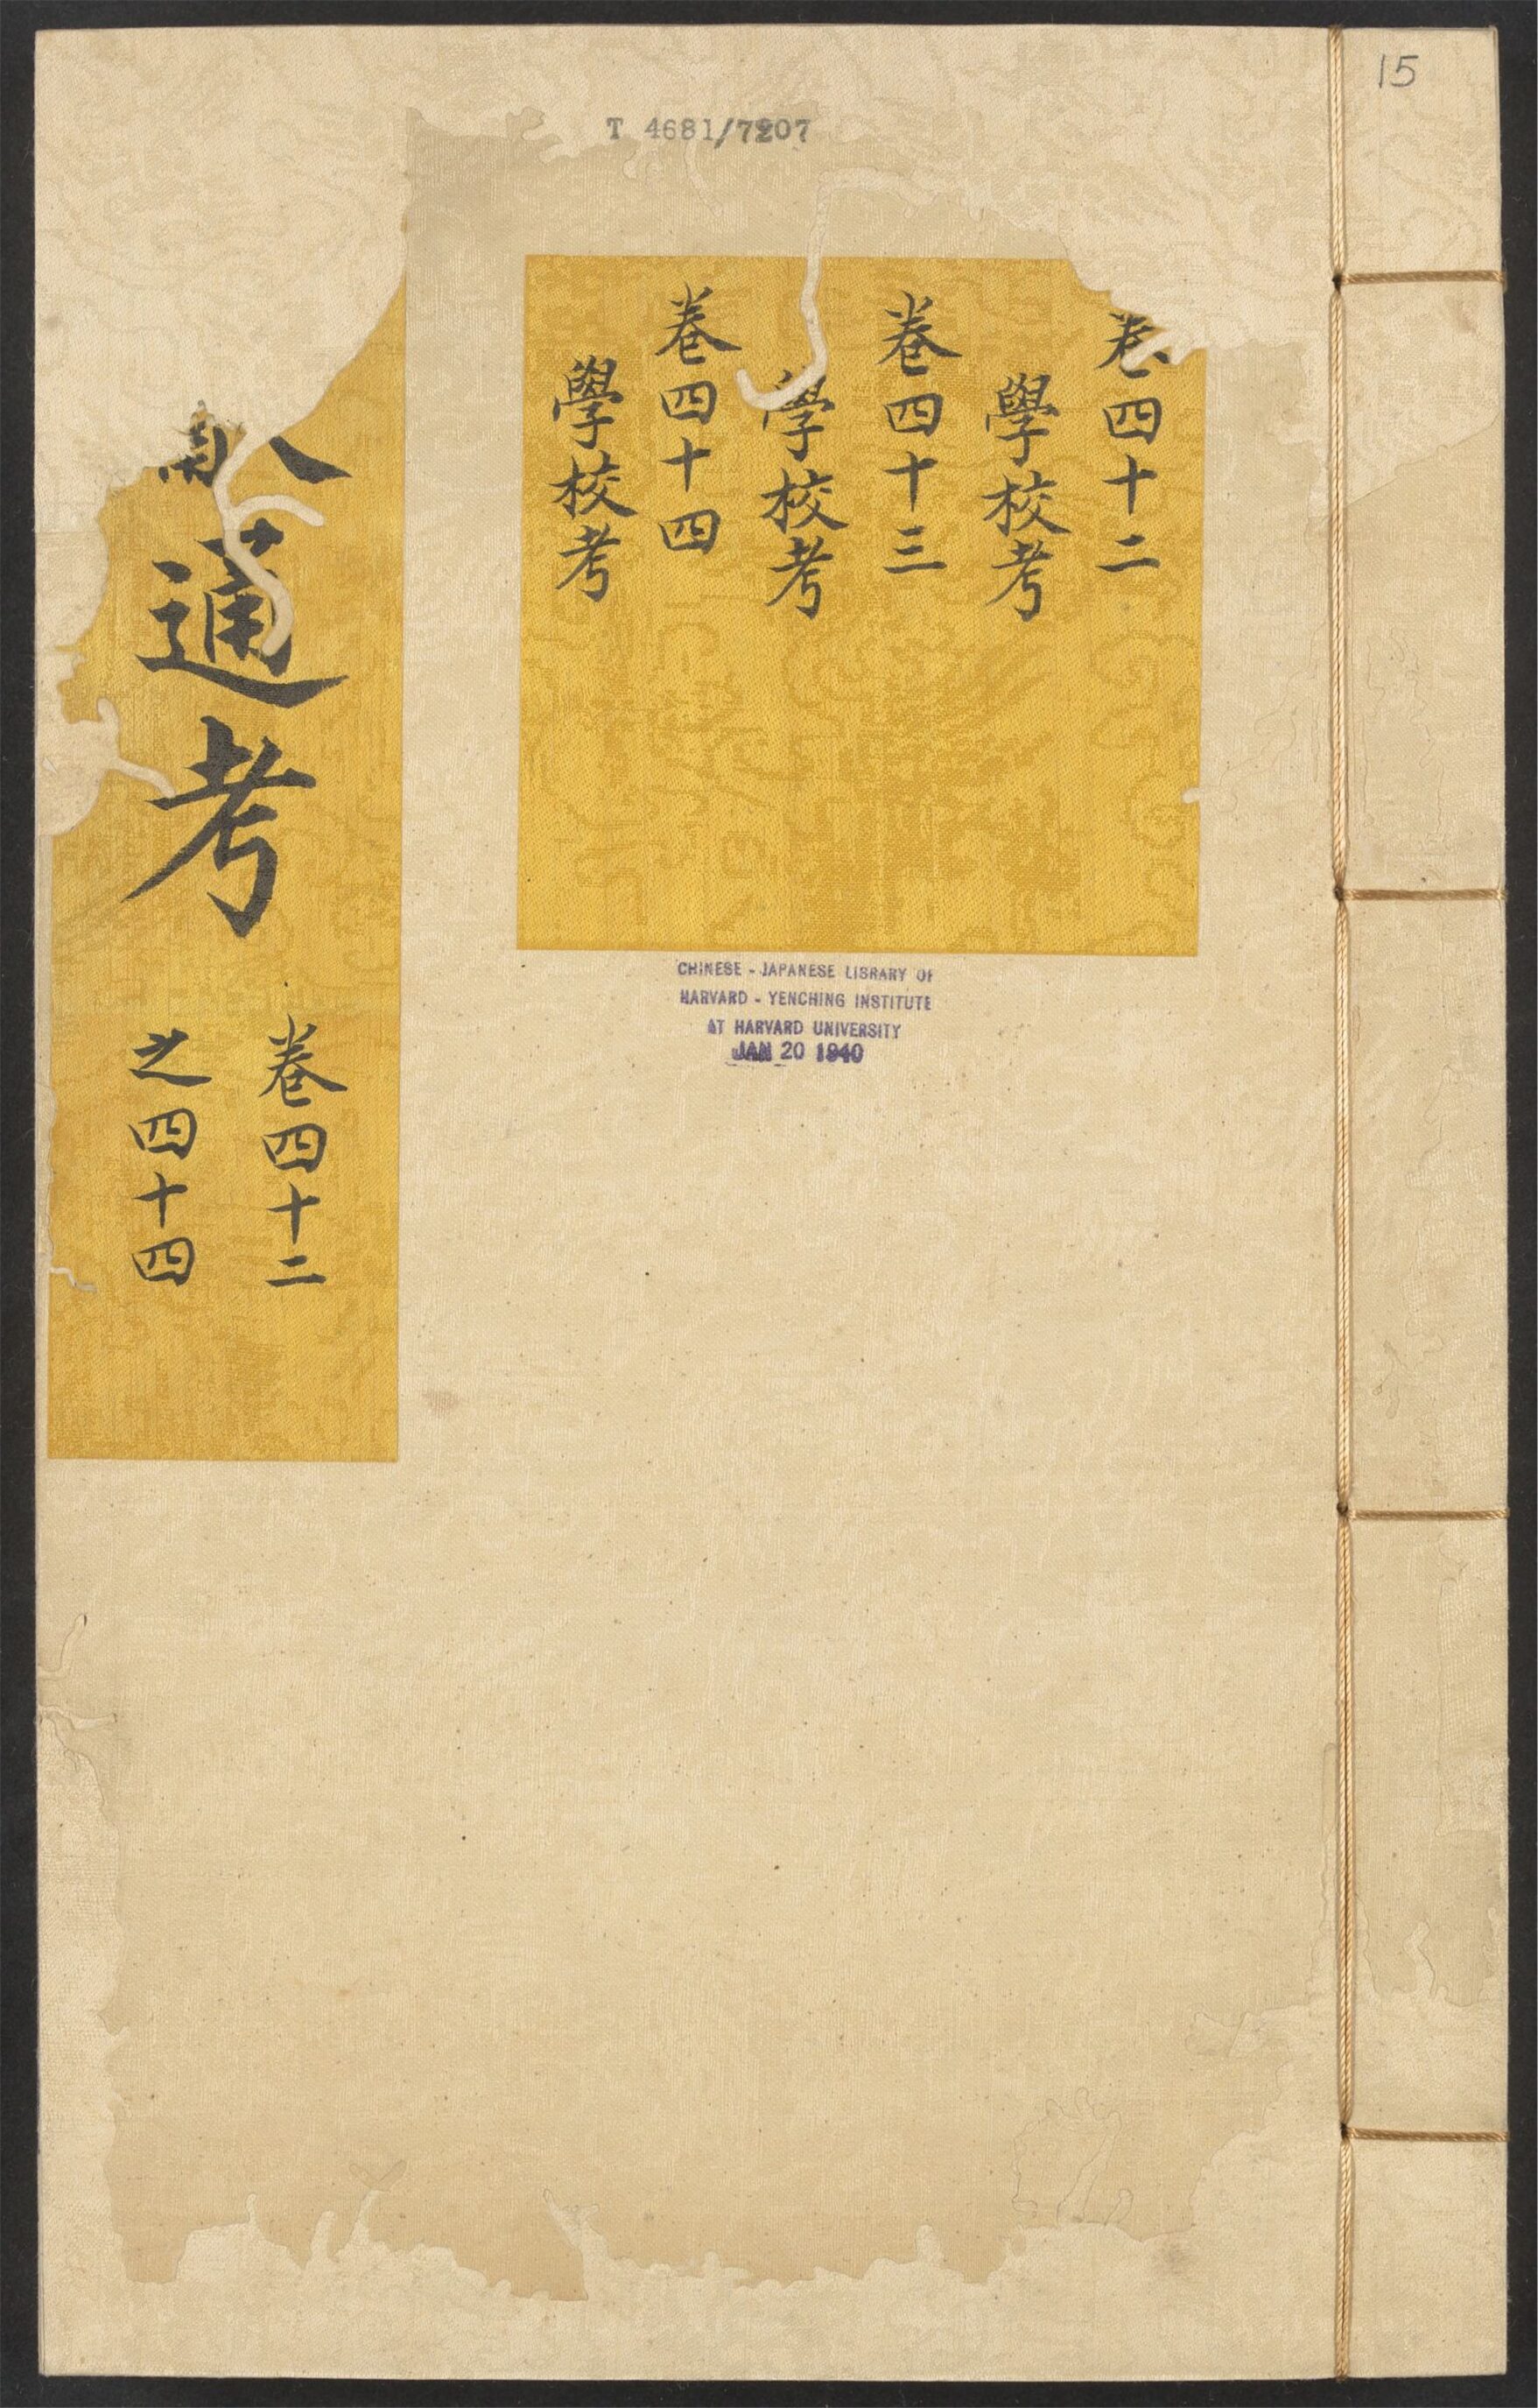 15
T 4681/7207
卷四十二
學校考
卷四十三
學校考
卷四十四
學校考
通考
卷四十二
之四十四
CHINESE - JAPANESE LIBRARY OF
HARVARD - YENCHING INSTITUTE
AT HARVARD UNIVERSITY
JAN 20 1940